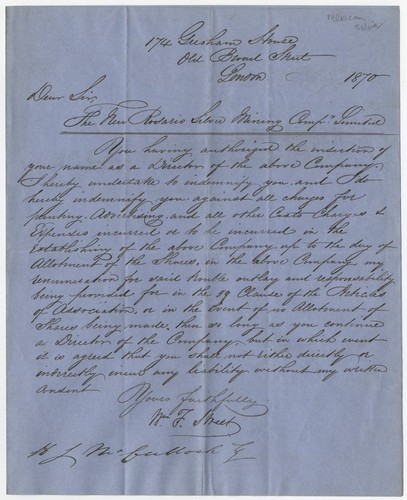 Mexican
Silver
174 Gresham House
Old Broad Street
London 1870
Dear Sir,
The New Rosario Silver Mining Compy Limited
You having authorised the insertion of
your name as a Director of the above Company,
I hereby undertake to indemnify you and I do
hereby indemnify you against all charges for
printing, Advertising and all other Costs Charges &
Expenses incurred or to be incurred in the
establishing of the above Company up to the day of
Allotment of the Shares, in the above Company my
remuneration for said trouble outlay and responsibility
being provided for in the 89 Clause of the Articles
of Association, or in the event of no Allotment of
Shares being made, then so long as you continue
a Director of the Company, but in which event
it is agreed that you shall not either directly or
indirectly incur any liability without my written
consent
Yours faithfully
Wm F. Street
H J McCulloch